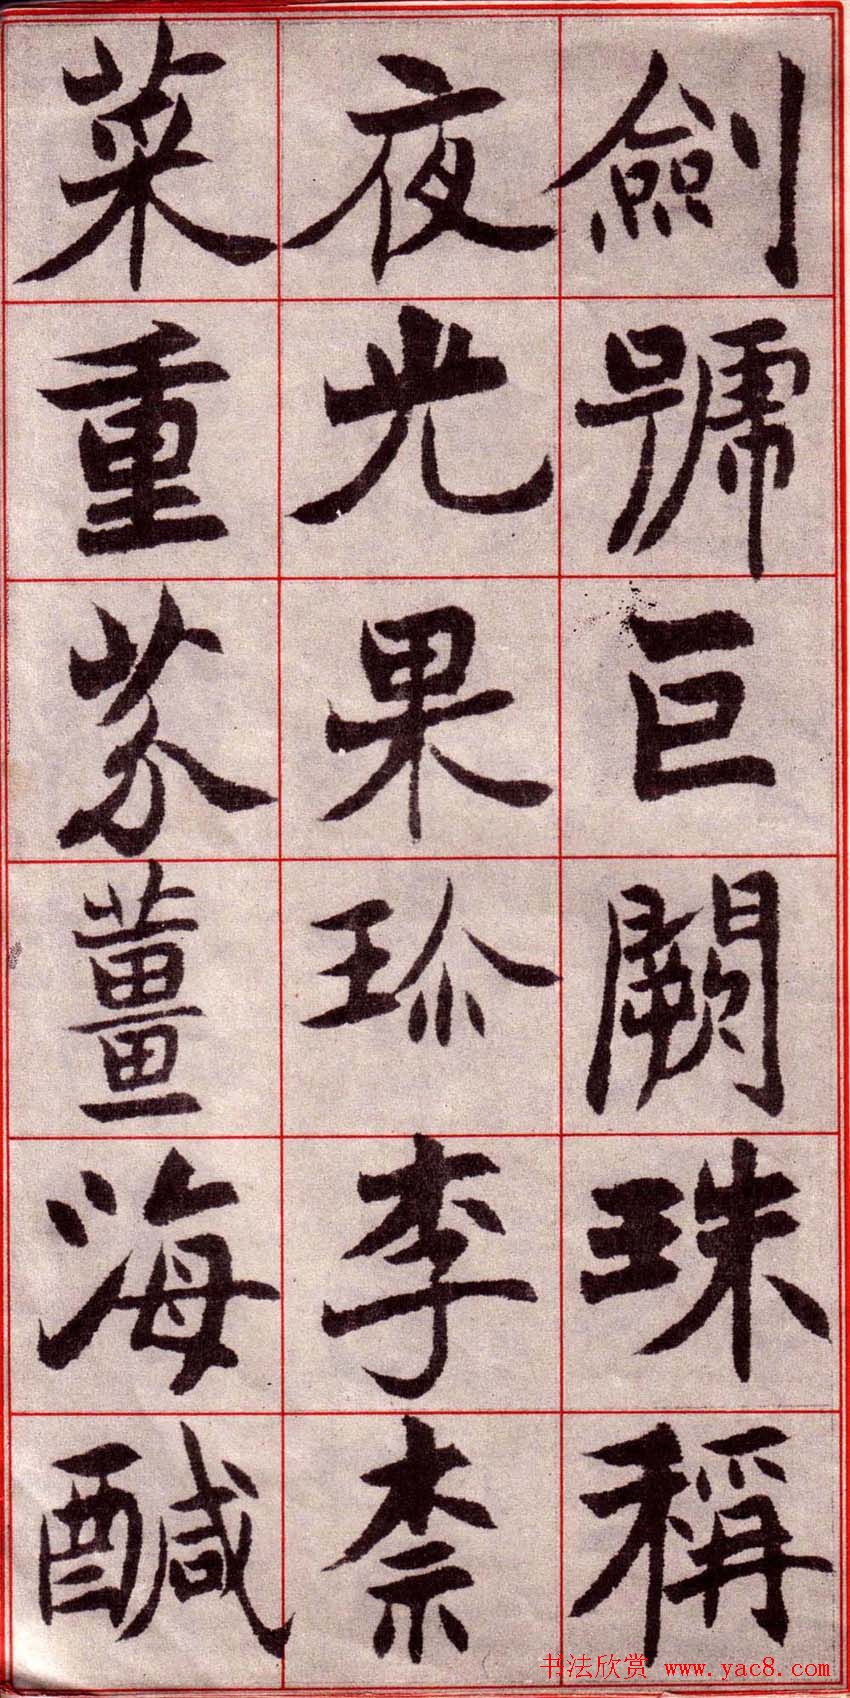 劍號巨闕珠稱
夜光果珎李柰
菜重芥薑海醎
书法欣赏 www.yac8.com